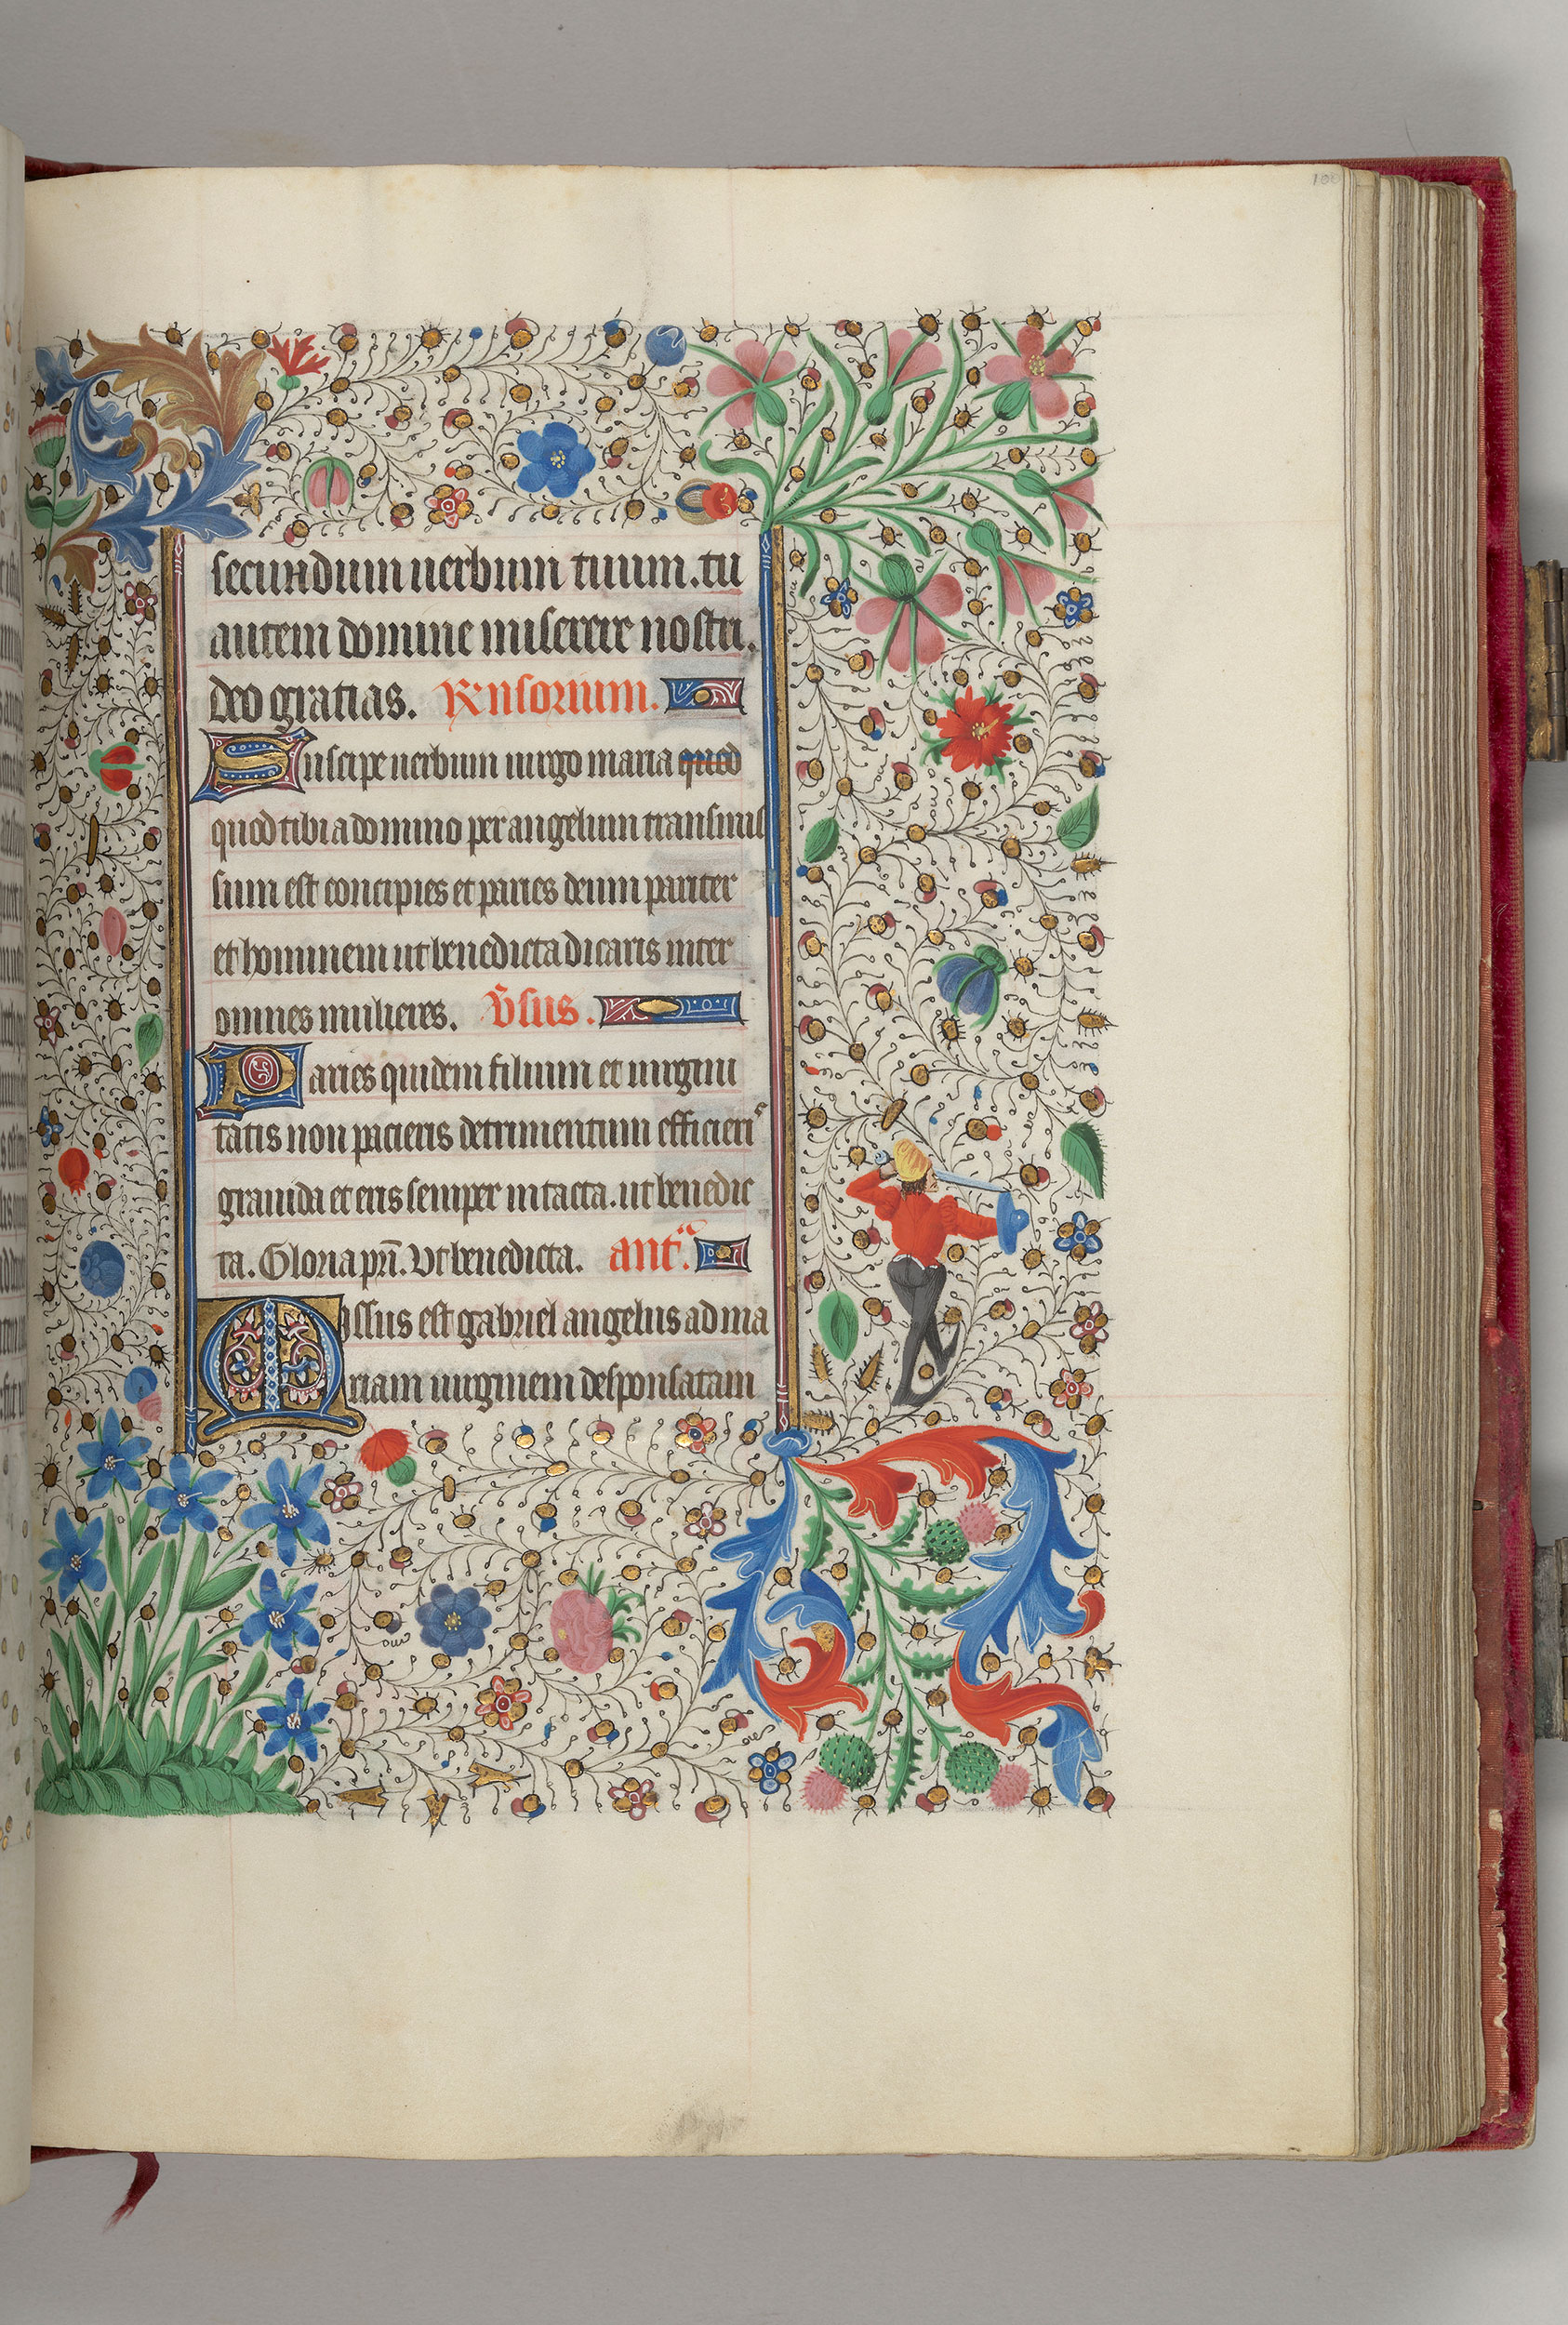 100
secundum uerbum tuum. tu
autem domine miserere nostri.
deo gratias. Rnsorium.
Suscipe uerbum uirgo maria quod
quod tibi a domino per angelum transmis
sum est concipies et paries deum pariter
et hominem ut benedicta dicaris inter
omnes mulieres. V̄sus.
Paries quidem filium et uirgini
tatis non pacieris detrimentum efficieris
grauida et eris semper intacta. ut benedic
ta. Gloria pr̄i. Ut benedicta. ant.ᵃ
Missus est gabriel angelus ad ma
riam uirginem desponsatam